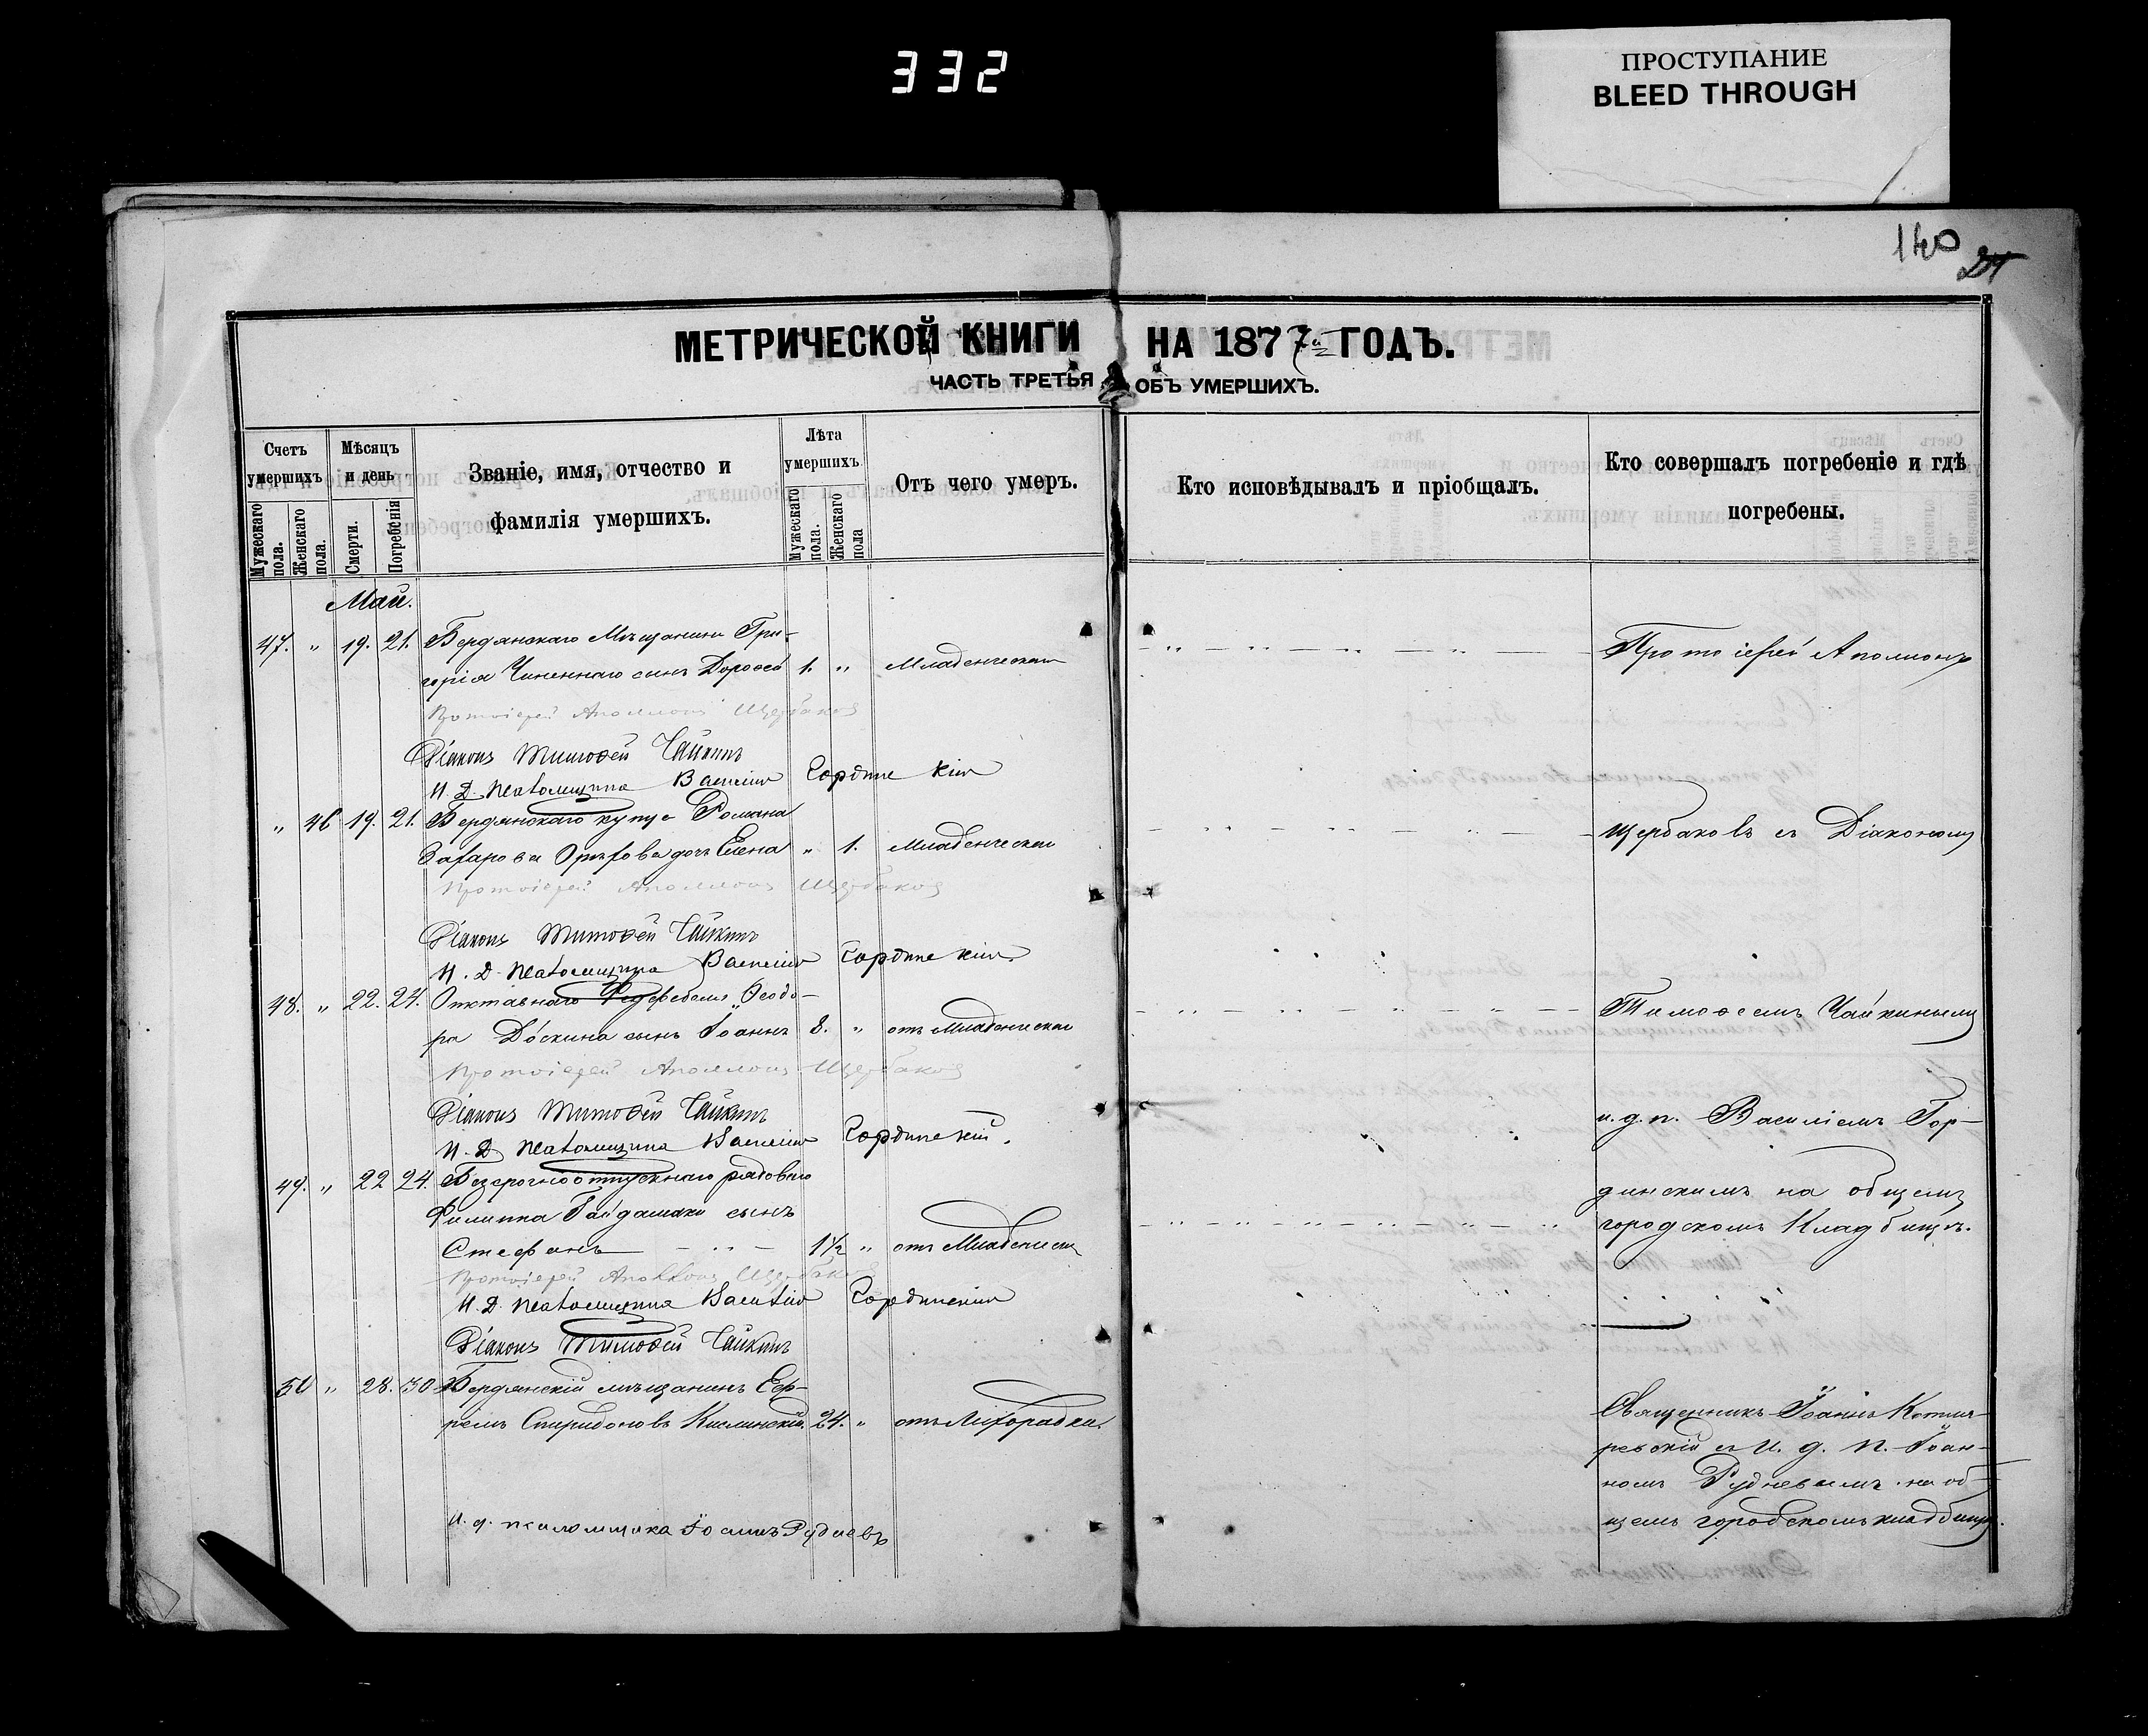 332
ПРОСТУПАНИЕ
BLEED THROUGH
140
24
МЕТРИЧЕСКОЙ КНИГИ НА 1877й ГОДЪ.
ЧАСТЬ ТРЕТЬЯ ОБЪ УМЕРШИХЪ.
Счетъ умершихъ
Мужескаго пола.
Женскаго пола.
Мѣсяцъ и день
Смерти.
Погребенія
Званіе, имя, отчество и
фамилія умершихъ.
Лѣта умершихъ
Мужескаго пола.
Женскаго пола
Отъ чего умеръ.
Кто исповѣдывалъ и пріобщалъ.
Кто совершалъ погребеніе и гдѣ
погребены.
Май.
47. " 19. 21. Бердянскаго Мѣщанина Гри-
горія сынъ Дороѳей 1. " Младенческой
Протоіерей Аполлонъ Щербаковъ
Діаконъ Тимоѳей Чайкинъ
И. Д. Псаломщика Василій Гординскій
" 46 19. 21. Бердянскаго купца Романа
Захарова дочь Елена " 1. Младенческой
Протоіерей Аполлонъ Щербаковъ
Діаконъ Тимоѳей Чайкинъ
И. Д. Псаломщика Василій Гординскій.
48. " 22. 24. Отставнаго Фельдфебеля Ѳеодо-
ра Доскина сынъ Іоаннъ 8. " отъ Младенческой
Протоіерей Аполлонъ Щербаковъ
Діаконъ Тимоѳей Чайкинъ
И. Д. Псаломщика Василій Гординскій.
49. " 22 24. Безсрочноотпускнаго рядоваго
Филиппа Гайдамаки сынъ
Стефанъ 1½ " отъ Младенческой
Протоіерей Аполлонъ Щербаковъ
И. Д. Псаломщика Василій Гординскій
Діаконъ Тимоѳей Чайкинъ
50 " 28. 30 Бердянскій мѣщанинъ Еф-
ремъ Спиридоновъ Кислинскій 24. " отъ Лихорадки.
И. д. псаломщика Іоаннъ Рудневъ
Протоіерей Аполлонъ
Щербаковъ съ Діакономъ
Тимоѳеемъ Чайкинымъ
и. д. п. Василіемъ Гор-
динскимъ на общемъ
городскомъ Кладбищѣ.
Священникъ Іоаннъ Котля-
ревскій съ И. д. п. Іоан-
номъ Рудневымъ на об-
щемъ городскомъ кладбищѣ.